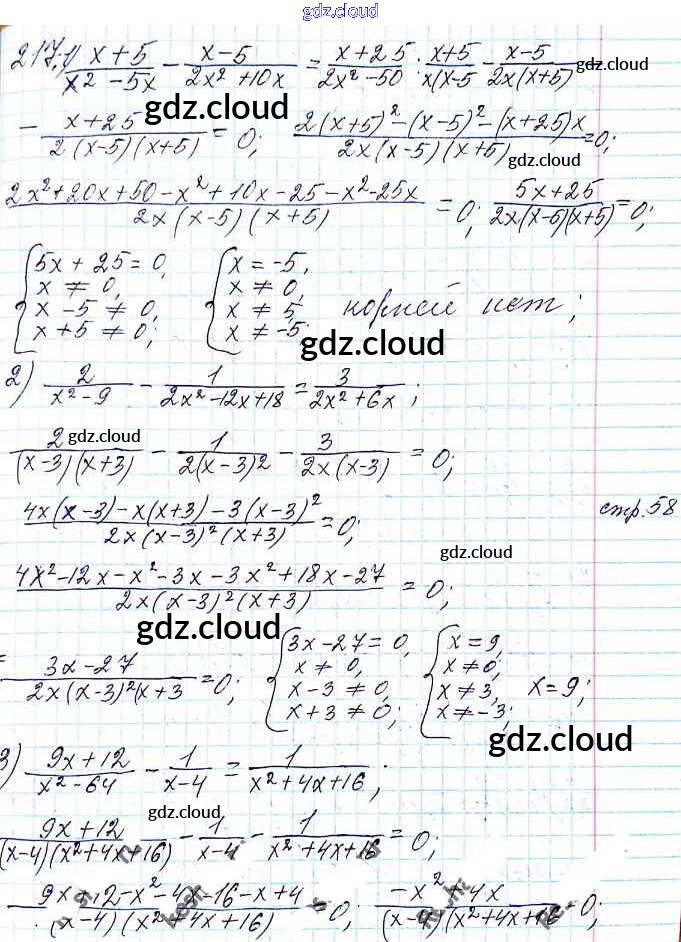 gdz.cloud
217.1) (x+5)/(x²-5x) - (x-5)/(2x²+10x) = (x+25)/(2x²-50); (x+5)/(x(x-5) - (x-5)/(2x(x+5)
gdz.cloud
- (x+25)/(2(x-5)(x+5)) = 0; (2(x+5)²-(x-5)²-(x+25)x)/(2x(x-5)(x+5)) = 0;
gdz.cloud
(2x²+20x+50-x²+10x-25-x²-25x)/(2x(x-5)(x+5)) = 0; (5x+25)/(2x(x-5)(x+5)) = 0;
{5x+25=0, {x=-5,
x≠0, x≠0
x-5≠0, x≠5 корней нет;
x+5≠0; x≠-5;
gdz.cloud
2) 2/(x²-9) - 1/(2x²-12x+18) = 3/(2x²+6x);
gdz.cloud
2/((x-3)(x+3)) - 1/(2(x-3)²) - 3/(2x(x-3)) = 0;
(4x(x-3)-x(x+3)-3(x-3)²)/(2x(x-3)²(x+3)) = 0; стр.58
gdz.cloud
(4x²-12x-x²-3x-3x²+18x-27)/(2x(x-3)²(x+3)) = 0;
gdz.cloud
= (3x-27)/(2x(x-3)²(x+3) = 0; {3x-27=0, {x=9,
x≠0, x≠0;
x-3≠0, x≠3, x=9;
x+3≠0; x≠-3;
gdz.cloud
3) (9x+12)/(x²-64) - 1/(x-4) = 1/(x²+4x+16);
gdz.cloud
(9x+12)/((x-4)(x²+4x+16)) - 1/(x-4) - 1/(x²+4x+16) = 0;
(9x+12-x²-4x-16-x+4)/((x-4)(x²+4x+16)) = 0; (-x²+4x)/((x-4)(x²+4x+16 = 0;